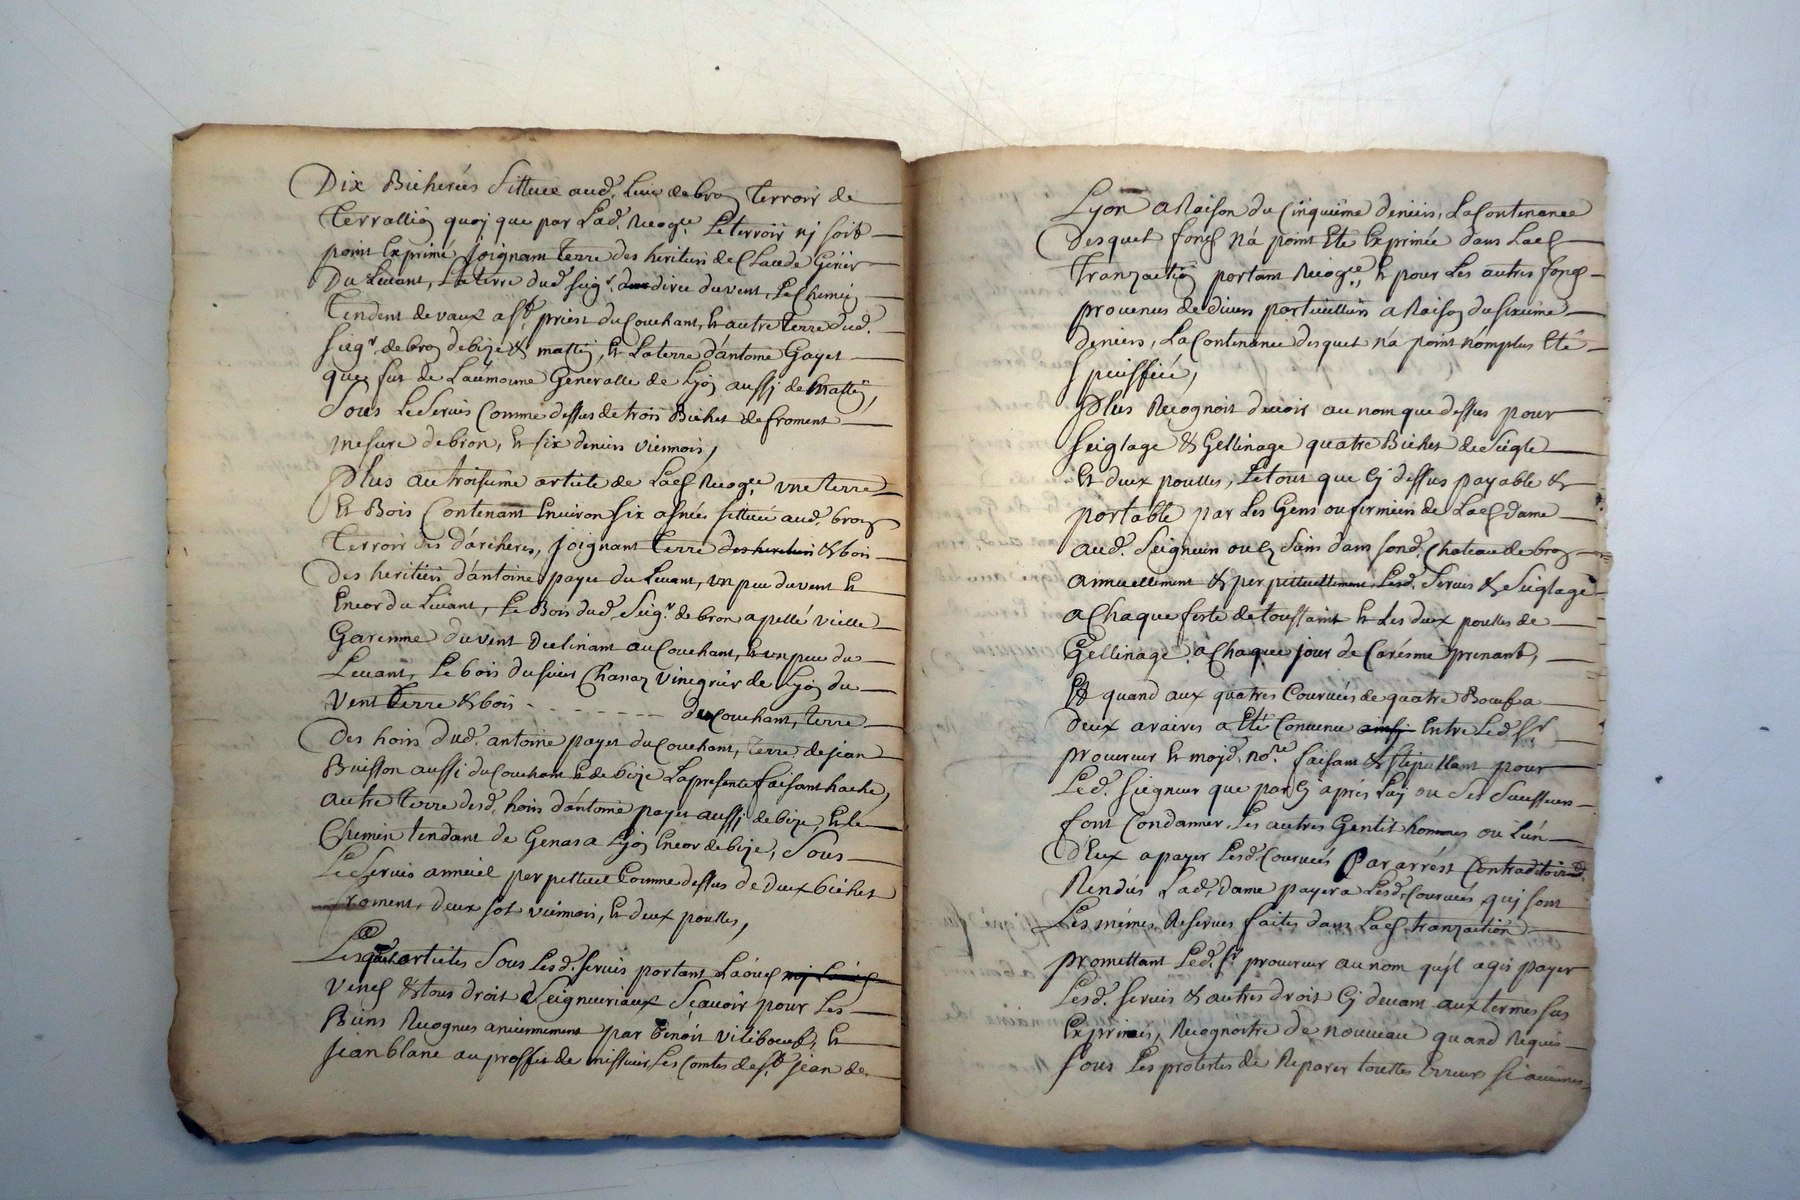 Dix Bicherées sittuée aud. lieu de bron terroir de
Terraillion quoy que par Lad. Recog.ce Le terroir ny soit
point Exprimé, joignant terre des heritiers de Claude
Du Levant, La terre dud. seig.r du vent, Le chemin
Tendent de vaux a s.t priest du Couchant, Et autre terre dud.
seig.r de bron de bize & mattin, Et La terre d'antoine Gayet
que fut de L'aumosne Generalle de Lyon aussi de Mattin,
Sous Le Servis Comme dessus de trois Bichet de froment
mesure de bron, Et six deniers viennois,
Plus au troisieme article de Lad. Recog.ce une terre
Et Bois Contenant Environ six asnées sittuée aud. bron
Terroir des d'archeres, joignant terre des heritiers & bois
Des heritiers d'antoine payet du Levant, un peu du vent Et
Encor du Levant, Le Bois dud. Seig.r de bron apellé vielle
Garenne du vent declinant au Couchant, Et un peu du
Levant, Le bois du sieur Chanaz vinegrier de Lyon du
Vent Terre & bois - - - - - - - - du Couchant, terre
Des hoirs dud. antoine payet du Couchant, terre de jean
Buisson aussi du Couchant Et de bize La presente faisant hache,
autre terre desd. hoirs d'antoine payet aussi de bize, Et le
Chemin tendant de Genas a Lyon Encor de bize, Sous
Le Servis annuel perpettuel Comme dessus de Deux bichet
froment, deux sol viennois, Et deux poulles,
Lesquels articles Sous Lesd. servis portant Laods
Vends & tous droit Seigneuriaux Scavoir pour Les
Biens Recognus anciennement par Benoit villiboeuf, Et
Jean blanc au proffit de messieurs Les Comtes de s.t jean de
Lyon a Raison du Cinquieme deniers, La Contenance
desquel fonds n'a point Eté Exprimée dans Lad.
Tranzaction portant Recog.ce, Et pour Les autres fonds
provenus de divers particuliers a Raison du sixieme
deniers, La Contenance desquel n'a point nomplus Eté
speciffiée,
Plus Recognoit devoir au nom que dessus pour
Seiglage & Gellinage quatre Bichet de Seigle
Et deux poulles, Le tout que Cy dessus payable &
portable par Les Gens ou fermiers de Lad. dame
aud. Seigneur ou es Siens dans sond. Chateau de bron
annuellement & perpettuellement, Lesd. Servis & Seiglage
a Chaque feste de toussaint Et Les deux poulles de
Gellinage a Chaque jour de Caresme prenant,
Et quand aux quatres Courvées de quatre Boeufs a
deux araires a Eté Convenu ainsy Entre Led. S.r
procureur Et moyd. no.re faisant & stipullant pour
Led. Seigneur que par Cy après Luy ou Ses Successeurs
font Condamner Les autres Gentit hommes ou L'un
d'Eux a payer Lesd. Courvées Par arrest Contraditoire
Rendus Lad. dame payera Lesd. Courvées, qui sont
Les mêmes Reserves faites dans Lad. tranzaction
promettant Led. S.r procureur au nom qu'jl agis payer
Lesd. servis & autres droit Cy devant aux termes sus
Exprimés, Recognoitre de nouveau quand Requis
Sous Les protestes de Reparer touttes Erreurs